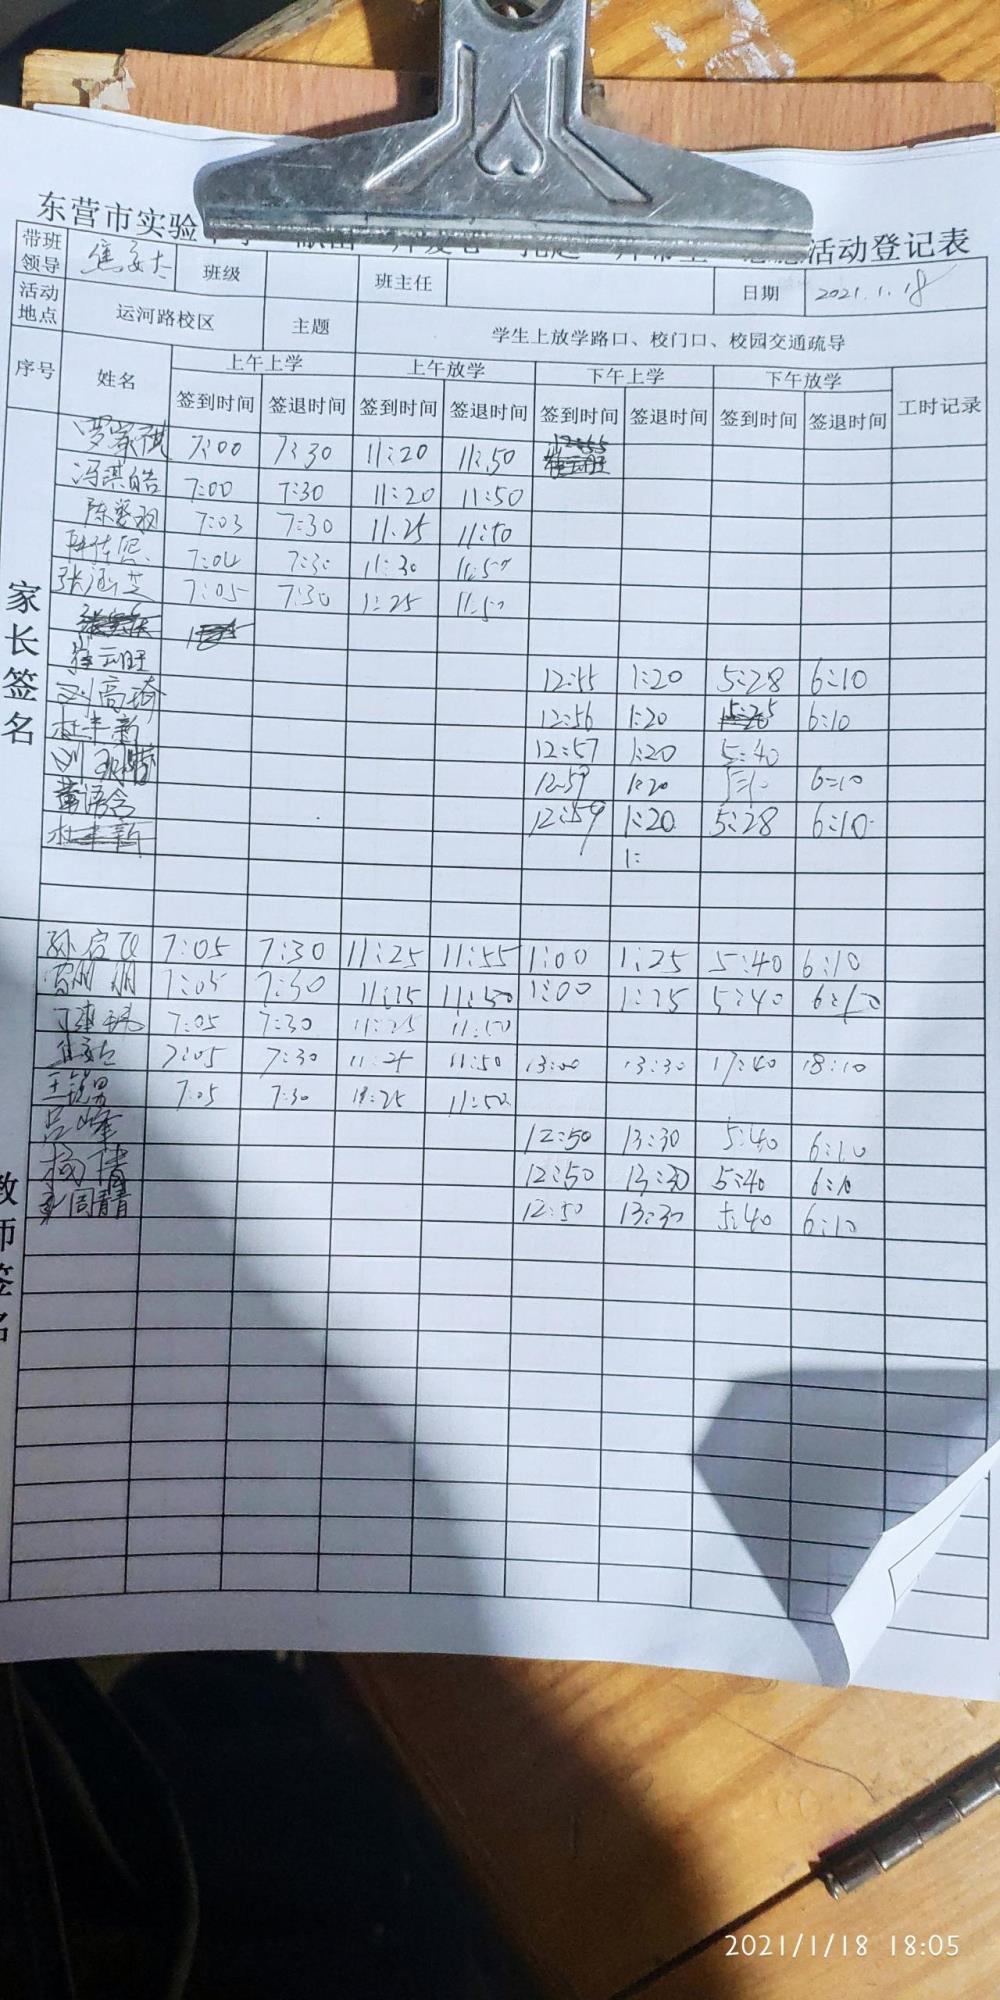 东营市实验 活动登记表
带班领导 班级 班主任 日期 2021.1.18
活动地点 运河路校区 主题 学生上放学路口、校门口、校园交通疏导
序号 姓名 上午上学 上午放学 下午上学 下午放学 工时记录
签到时间 签退时间 签到时间 签退时间 签到时间 签退时间 签到时间 签退时间
家长签名
7:00 7:30 11:20 11:50
冯淇皓 7:00 7:30 11:20 11:50
7:03 7:30 11:25 11:50
7:04 7:30 11:30 11:50
张涵芝 7:05 7:30 1:25 11:50
12:55 1:20 5:28 6:10
刘高琦 12:56 1:20 6:10
杜丰新 12:57 1:20 5:40
12:59 1:20 6:10
黄语含 12:59 1:20 5:28 6:10
杜丰新 1:
教师签名
孙启飞 7:05 7:30 11:25 11:55 1:00 1:25 5:40 6:10
7:05 7:30 11:25 11:50 1:00 1:25 5:40 6:10
7:05 7:30 11:25 11:50
7:05 7:30 11:25 11:50 13:00 13:30 17:40 18:10
王锐男 7:05 7:30 11:25 11:50
吕峰 12:50 13:30 5:40 6:10
杨倩 12:50 13:30 5:40 6:10
周青青 12:50 13:30 5:40 6:10
2021/1/18 18:05